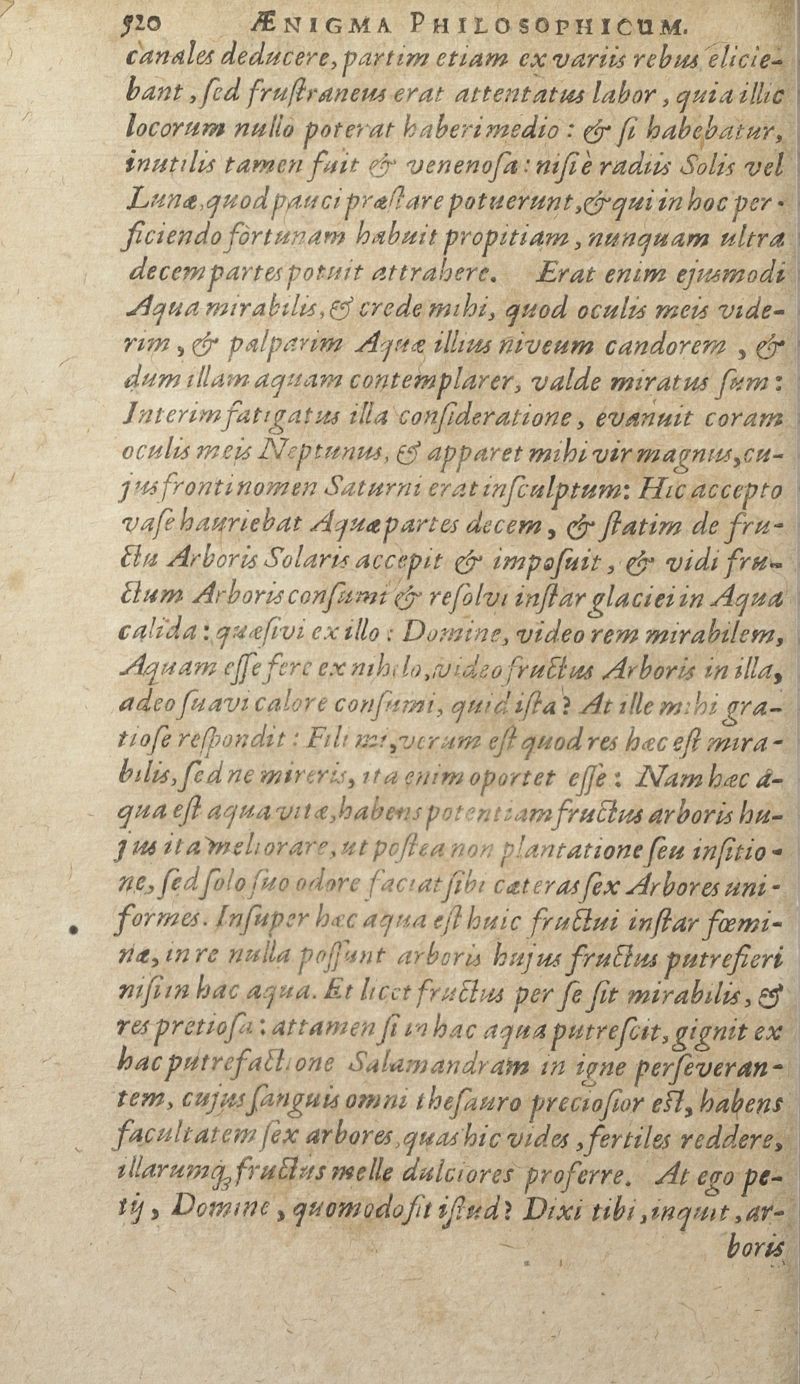 520 ÆNIGMA PHILOSOPHICUM.
canales deducere, partim etiam ex variis rebus elicie-
bant, ſed fruſtraneus erat attentatus labor, quia illic
locorum nullo poterat haberi medio: & ſi habebatur,
inutilis tamen fuit & venenoſa: niſi è radiis Solis vel
Lunæ, quod pauci præſtare potuerunt, & qui in hoc per-
ficiendo fortunam habuit propitiam, nunquam ultra
decem partes potuit attrahere. Erat enim ejusmodi
Aqua mirabilis, & crede mihi, quod oculis meis vide-
rim, & palparim Aquæ illius niveum candorem, &
dum illam aquam contemplarer, valde miratus ſum:
Interim fatigatus illa conſideratione, evanuit coram
oculis meis Neptunus, & apparet mihi vir magnus, cu-
jus fronti nomen Saturni erat inſculptum: Hic accepto
vaſe hauriebat Aquæ partes decem, & ſtatim de fru-
ctu Arboris Solaris accepit & impoſuit, & vidi fru-
ctum Arboris conſumi & reſolvi inſtar glaciei in Aqua
calida: quæſivi ex illo: Domine, video rem mirabilem,
Aquam eſſe fere ex nihilo, video fructus Arboris in illa,
adeo ſuavi calore conſumi, quid iſta? At ille mihi gra-
tioſe reſpondit: Fili mi, verum eſt quod res hæc eſt mira-
bilis, ſed ne mireris, ita enim oportet eſſe: Nam hæc a-
qua eſt aqua vitæ, habens potentiam fructus arboris hu-
jus ita meliorare, ut poſtea non plantatione ſeu inſitio-
ne, ſed ſolo ſuo odore faciat ſibi cæteras ſex Arbores uni-
formes. Inſuper hæc aqua eſt huic fructui inſtar fœmi-
næ, in re nulla poſſunt arboris hujus fructus putrefieri
niſi in hac aqua. Et licet fructus per ſe ſit mirabilis, &
res pretioſa: attamen ſi in hac aqua putreſcit, gignit ex
hac putrefactione Salamandram in igne perſeveran-
tem, cujus ſanguis omni theſauro precioſior eſt, habens
facultatem ſex arbores, quas hic vides, fertiles reddere,
illarumq; fructus melle dulciores proferre. At ego pe-
tij, Domine, quomodo fit iſtud? Dixi tibi, inquit, ar-
boris